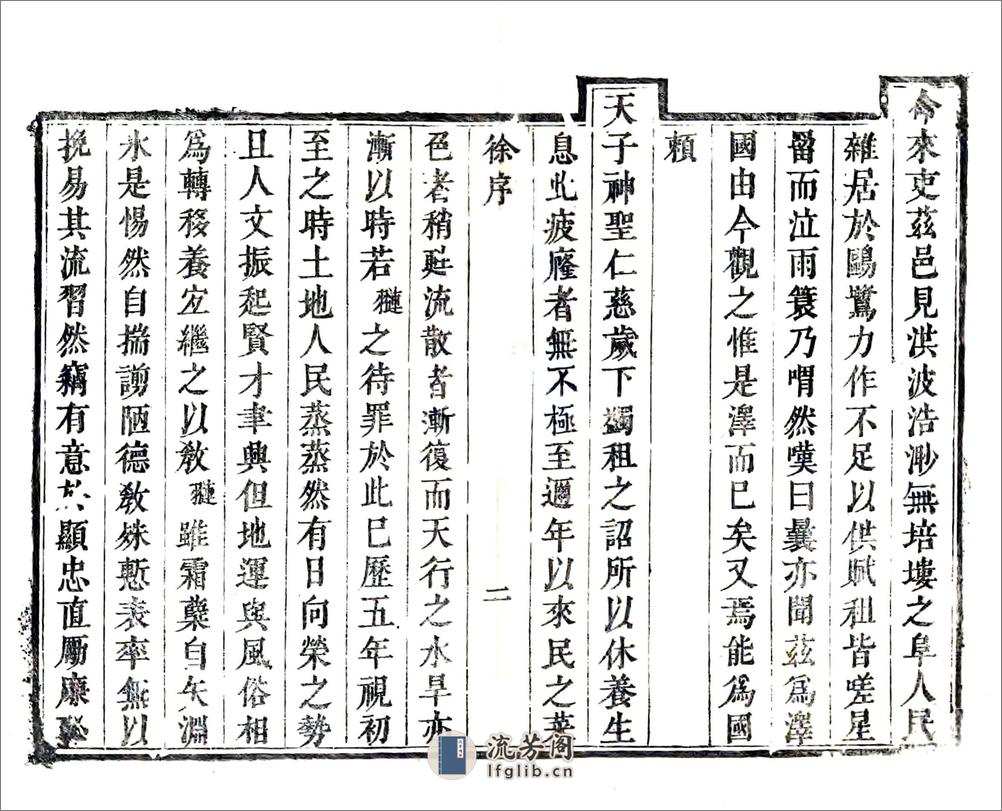 今來吏茲邑見洪波浩渺無培塿之阜人民
雜居於鷗鷺力作不足以供賦租皆嗟星
罶而泣雨簑乃喟然嘆曰曩亦聞茲爲澤
國由今觀之惟是澤而已矣又焉能爲國
賴
天子神聖仁慈歲下蠲租之詔所以休養生
息此疲癃者無不極至邇年以來民之菜
徐序
二
色者稍甦流散者漸復而天行之水旱亦
漸以時若䎖之待罪於此已歷五年視初
至之時土地人民蒸蒸然有日向榮之勢
且人文振起賢才聿興但地運與風俗相
爲轉移養宏繼之以敎䎖雖霜蘗自矢淵
氷是惕然自揣謭陋德敎殊慙表率無以
挽易其流習然竊有意於顯忠直厲廉
流芳阁
lfglib.cn